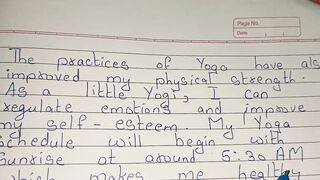 Page No.
Date
The practices of Yoga have also
improved my physical strength.
As a little Yogi, I can
regulate emotions and improve
my self-esteem. My Yoga
Schedule will begin with
Sunrise at around 5:30 AM
which makes me healthy